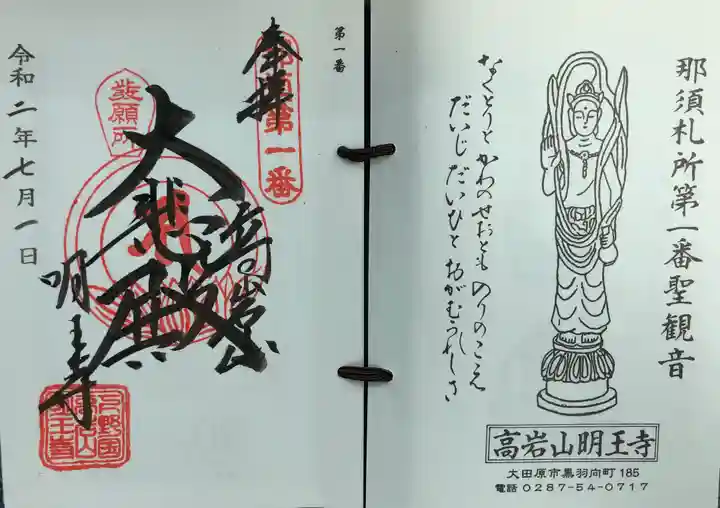 那須札所第一番聖観音
なくとりと かわのせおとも のりのこえ
だいじ だいひと おがむうれしさ
高岩山明王寺
大田原市黒羽向町185
電話0287-54-0717
第一番
奉拝
那須第一番
発願所
大悲殿
高岩山
明王寺
令和二年七月一日